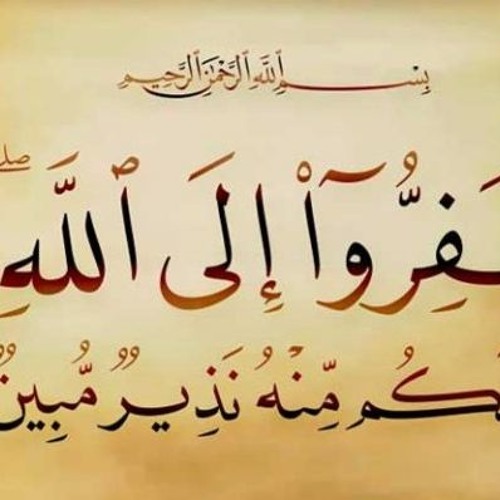 بِسْمِ ٱللَّهِ ٱلرَّحْمَٰنِ ٱلرَّحِيمِ
فَفِرُّوٓا۟ إِلَى ٱللَّهِ ۖ
لَكُم مِّنْهُ نَذِيرٌ مُّبِينٌ